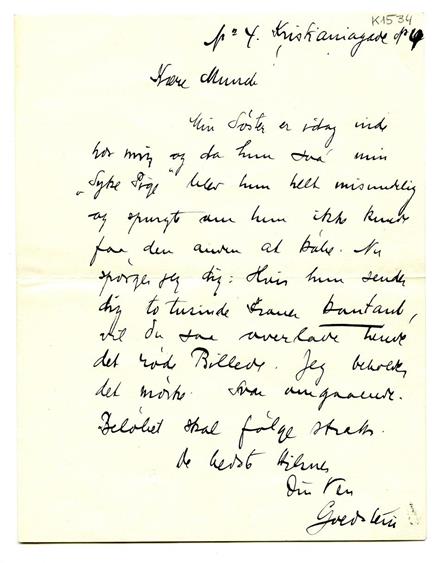 K1534
No 4. Kristianiagade
Kære Munch
Min Søster er idag inde
hos mig og da hun saa min
„Syke Pige" blev hun helt misundelig
og spurgte om hun ikke kunde
faa den anden at købe. Nu
spørger jeg dig: Hvis hun sender
dig to tusinde Kroner kontant,
vil du saa overlade hende
det røde Billede. Jeg beholder
det mørke. Svar omgaaende.
Beløbet skal følge straks.
De bedste Hilsner
Din Ven
Goldstein